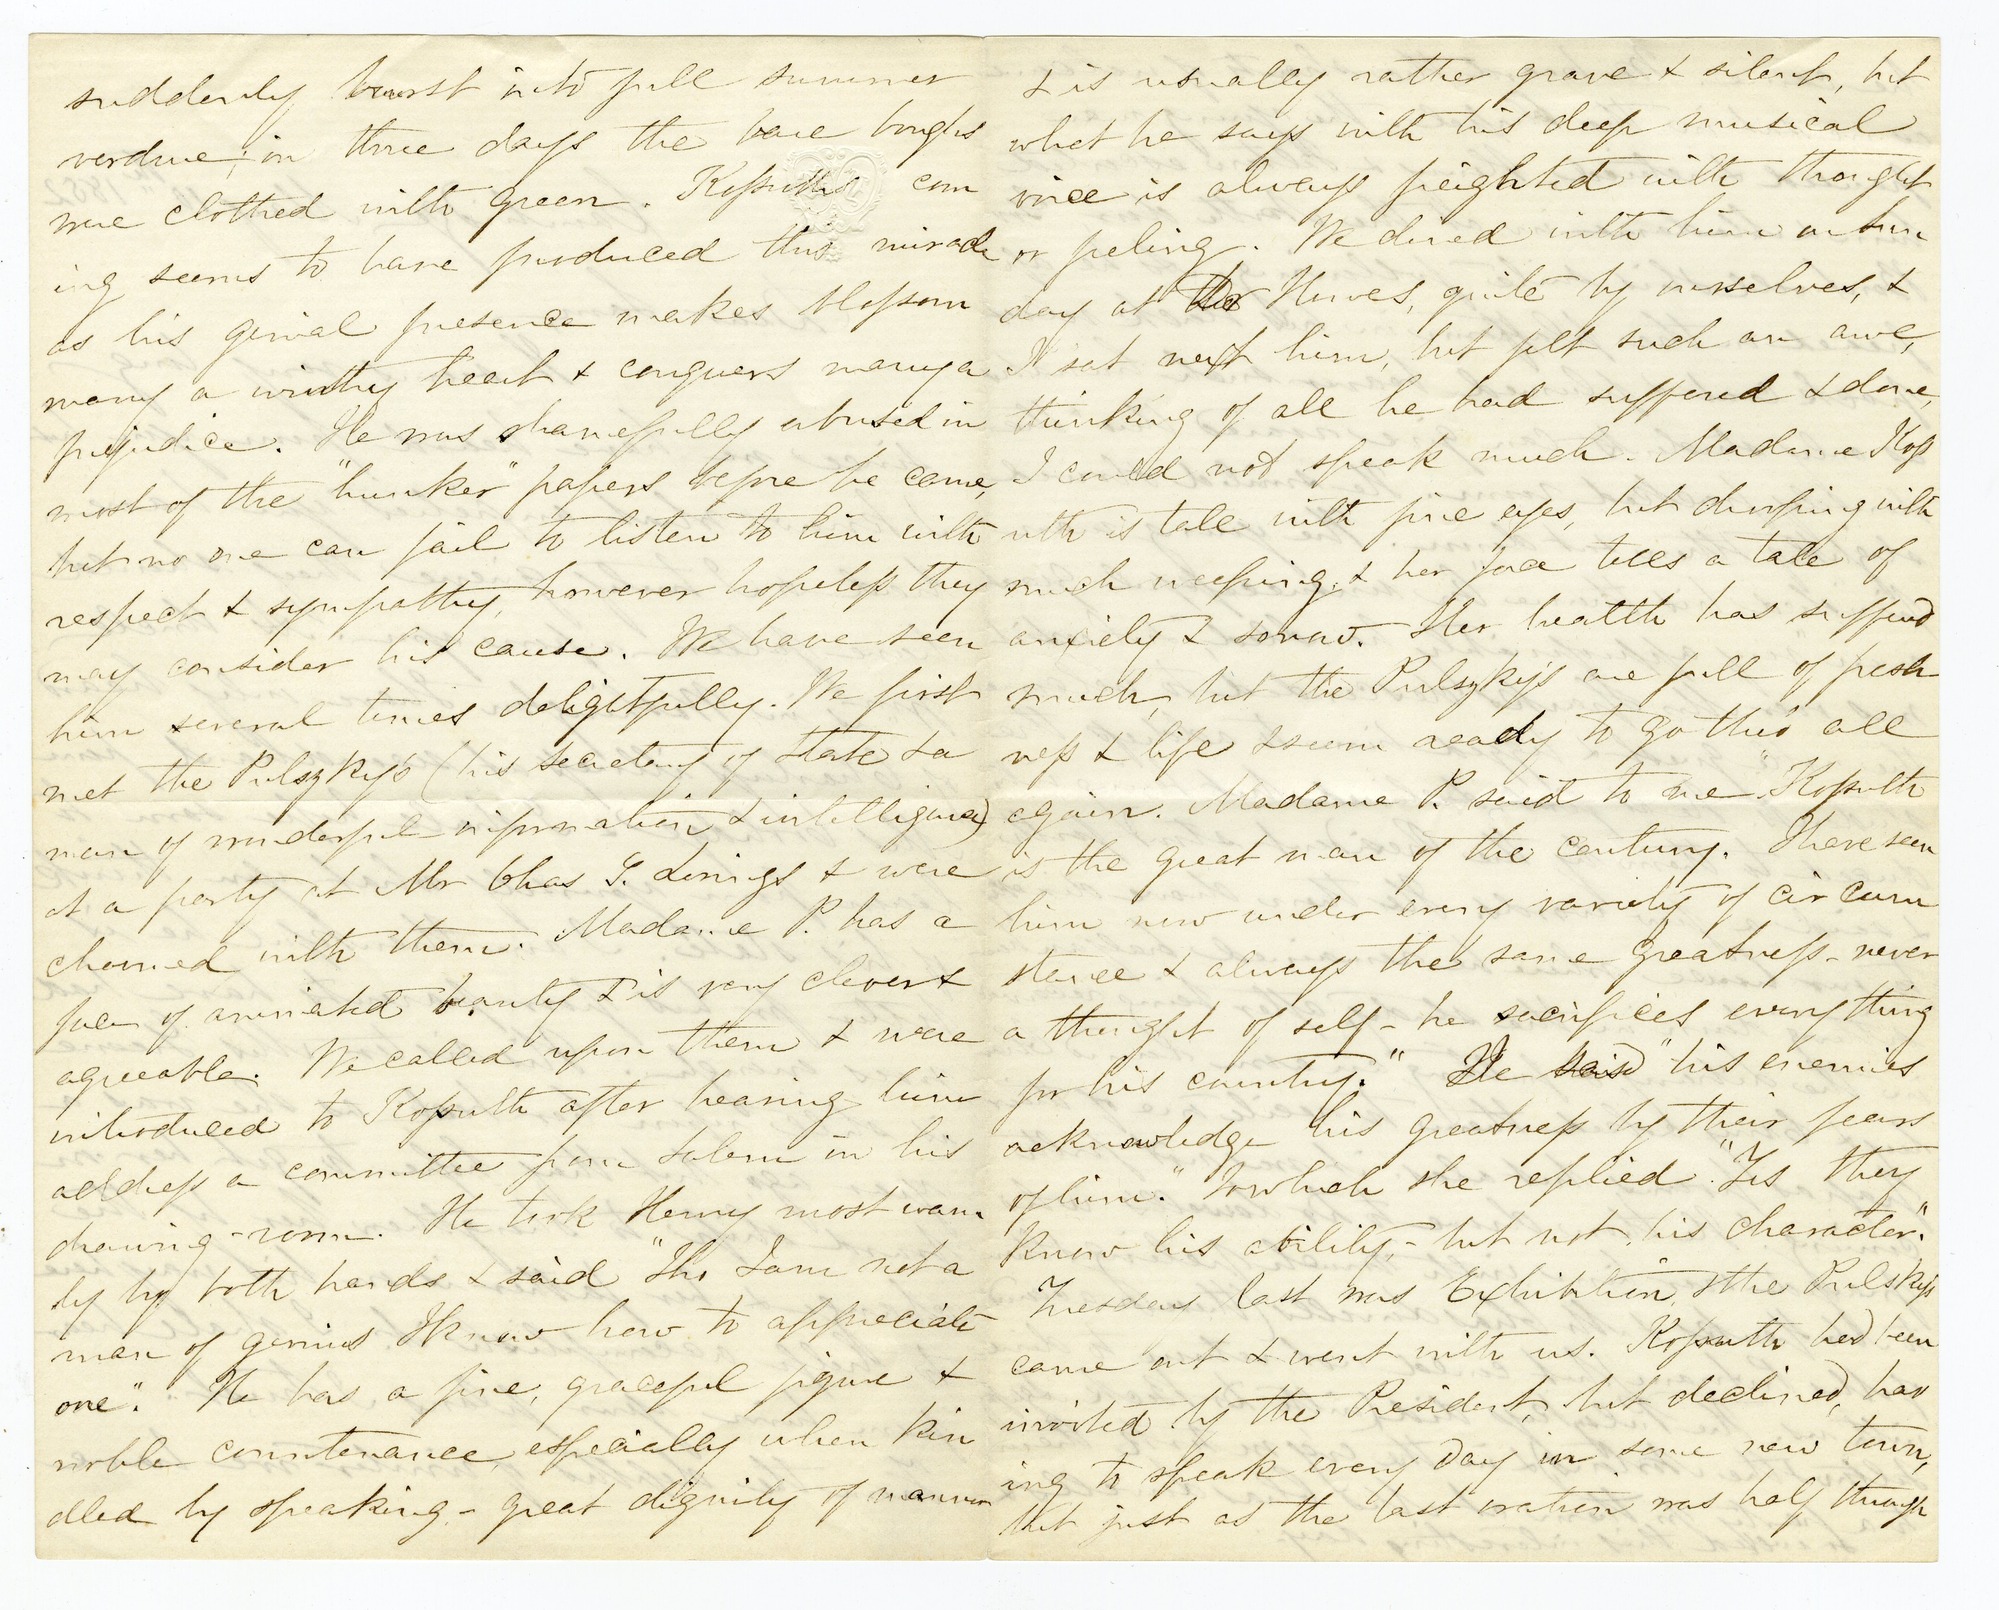 suddenly burst into full summer
verdure; in three days the bare boughs
were clothed with green. Kossuth's com
ing seems to have produced this miracle
as his genial presence makes blossom
many a wintry heart & conquers many a
prejudice. He was shamefully abused in
most of the "hunker" papers before he came,
but no one can fail to listen to him with
respect & sympathy, however hopeless they
may consider his cause. We have seen
him several times delightfully. We first
met the Pulszky's (his secretary of state & a
man of wonderful information & intelligence)
at a party at Mr Chas G. Lorings & were
charmed with them. Madame P. has a
face of animated beauty & is very clever &
agreeable. We called upon them & were
introduced to Kossuth after hearing him
address a committee from Salem in his
drawing-room. He took Henry most warm
ly by both hands & said "Tho' I am not a
man of genius I know how to appreciate
one". He has a fine, graceful figure &
noble countenance, especially when kin
dled by speaking - great dignity of manner
& is usually rather grave & silent, but
what he says with his deep musical
voice is always freighted with thought
or feeling. We dined with him on Sun
day at Howes, quite by ourselves, &
I sat next him, but felt such an awe,
thinking of all he had suffered & done,
I could not speak much. Madame Koss
uth is tall with fine eyes, but drooping with
much weeping, & her face tells a tale of
anxiety & sorrow. Her health has suffered
much, but the Pulszky's are full of fresh
ness & life & seem ready to go thro' all
again. Madame P. said to me "Kossuth
is the great man of the century. I have seen
him now under every variety of circum
stance & always the same greatness - never
a thought of self - he sacrifices everything
for his country." He said "his enemies
acknowledge his greatness by their fears
of him." To which she replied "Yes they
know his ability, - but not his character."
Tuesday last was Exhibition, & the Pulskys
came out & went with us. Kossuth had been
invited by the President, but declined, hav
ing to speak every day in some new town,
but just as the last oration was half through